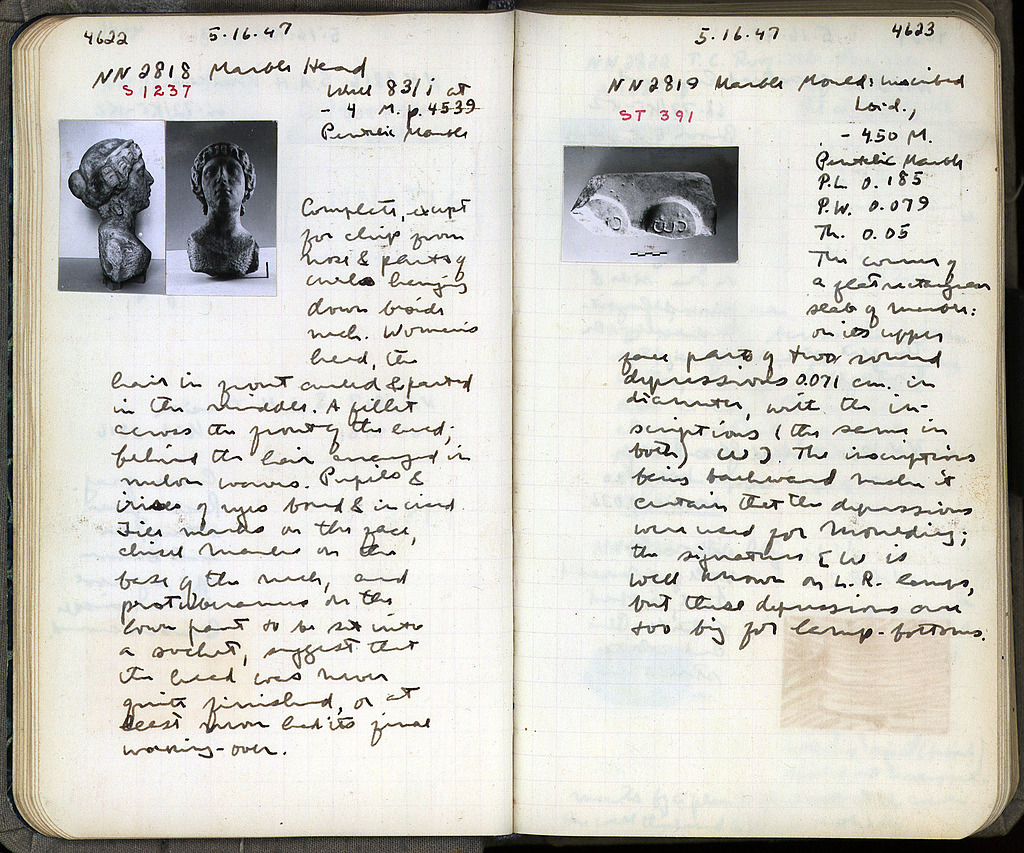 4622
5·16·47
NN 2818 Marble Head
S 1237
Well 83/1 at
- 4 M. p. 4539
Pentelic Marble
Complete, except
for chip from
nose & parts of
curls hanging
down beside
neck. Woman's
head, the
hair in front curled & parted
in the middle. A fillet
across the front of the head;
behind the hair arranged in
melon waves. Pupils &
irises of eyes bored & incised.
File marks on the face,
chisel marks on the
base of the neck, and
protuberance on the
lower part to be set into
a socket, suggest that
the head was never
quite finished, or at
least never had its final
working-over.
5.16.47
4623
NN 2819 Marble Mould: inscribed
ST 391
Loid.,
- 4.50 M.
Pentelic Marble
P.L. 0.185
P.W. 0.079
Th. 0.05
The corner of
a flat rectangular
slab of marble:
on its upper
face parts of two round
depressions 0.071 cm. in
diameter, with the in-
scriptions (the same in
both) The inscriptions
being backward makes it
certain that the depressions
were used for moulding;
the signature is
well known on L.R. lamps,
but these depressions are
too big for lamp-bottoms.